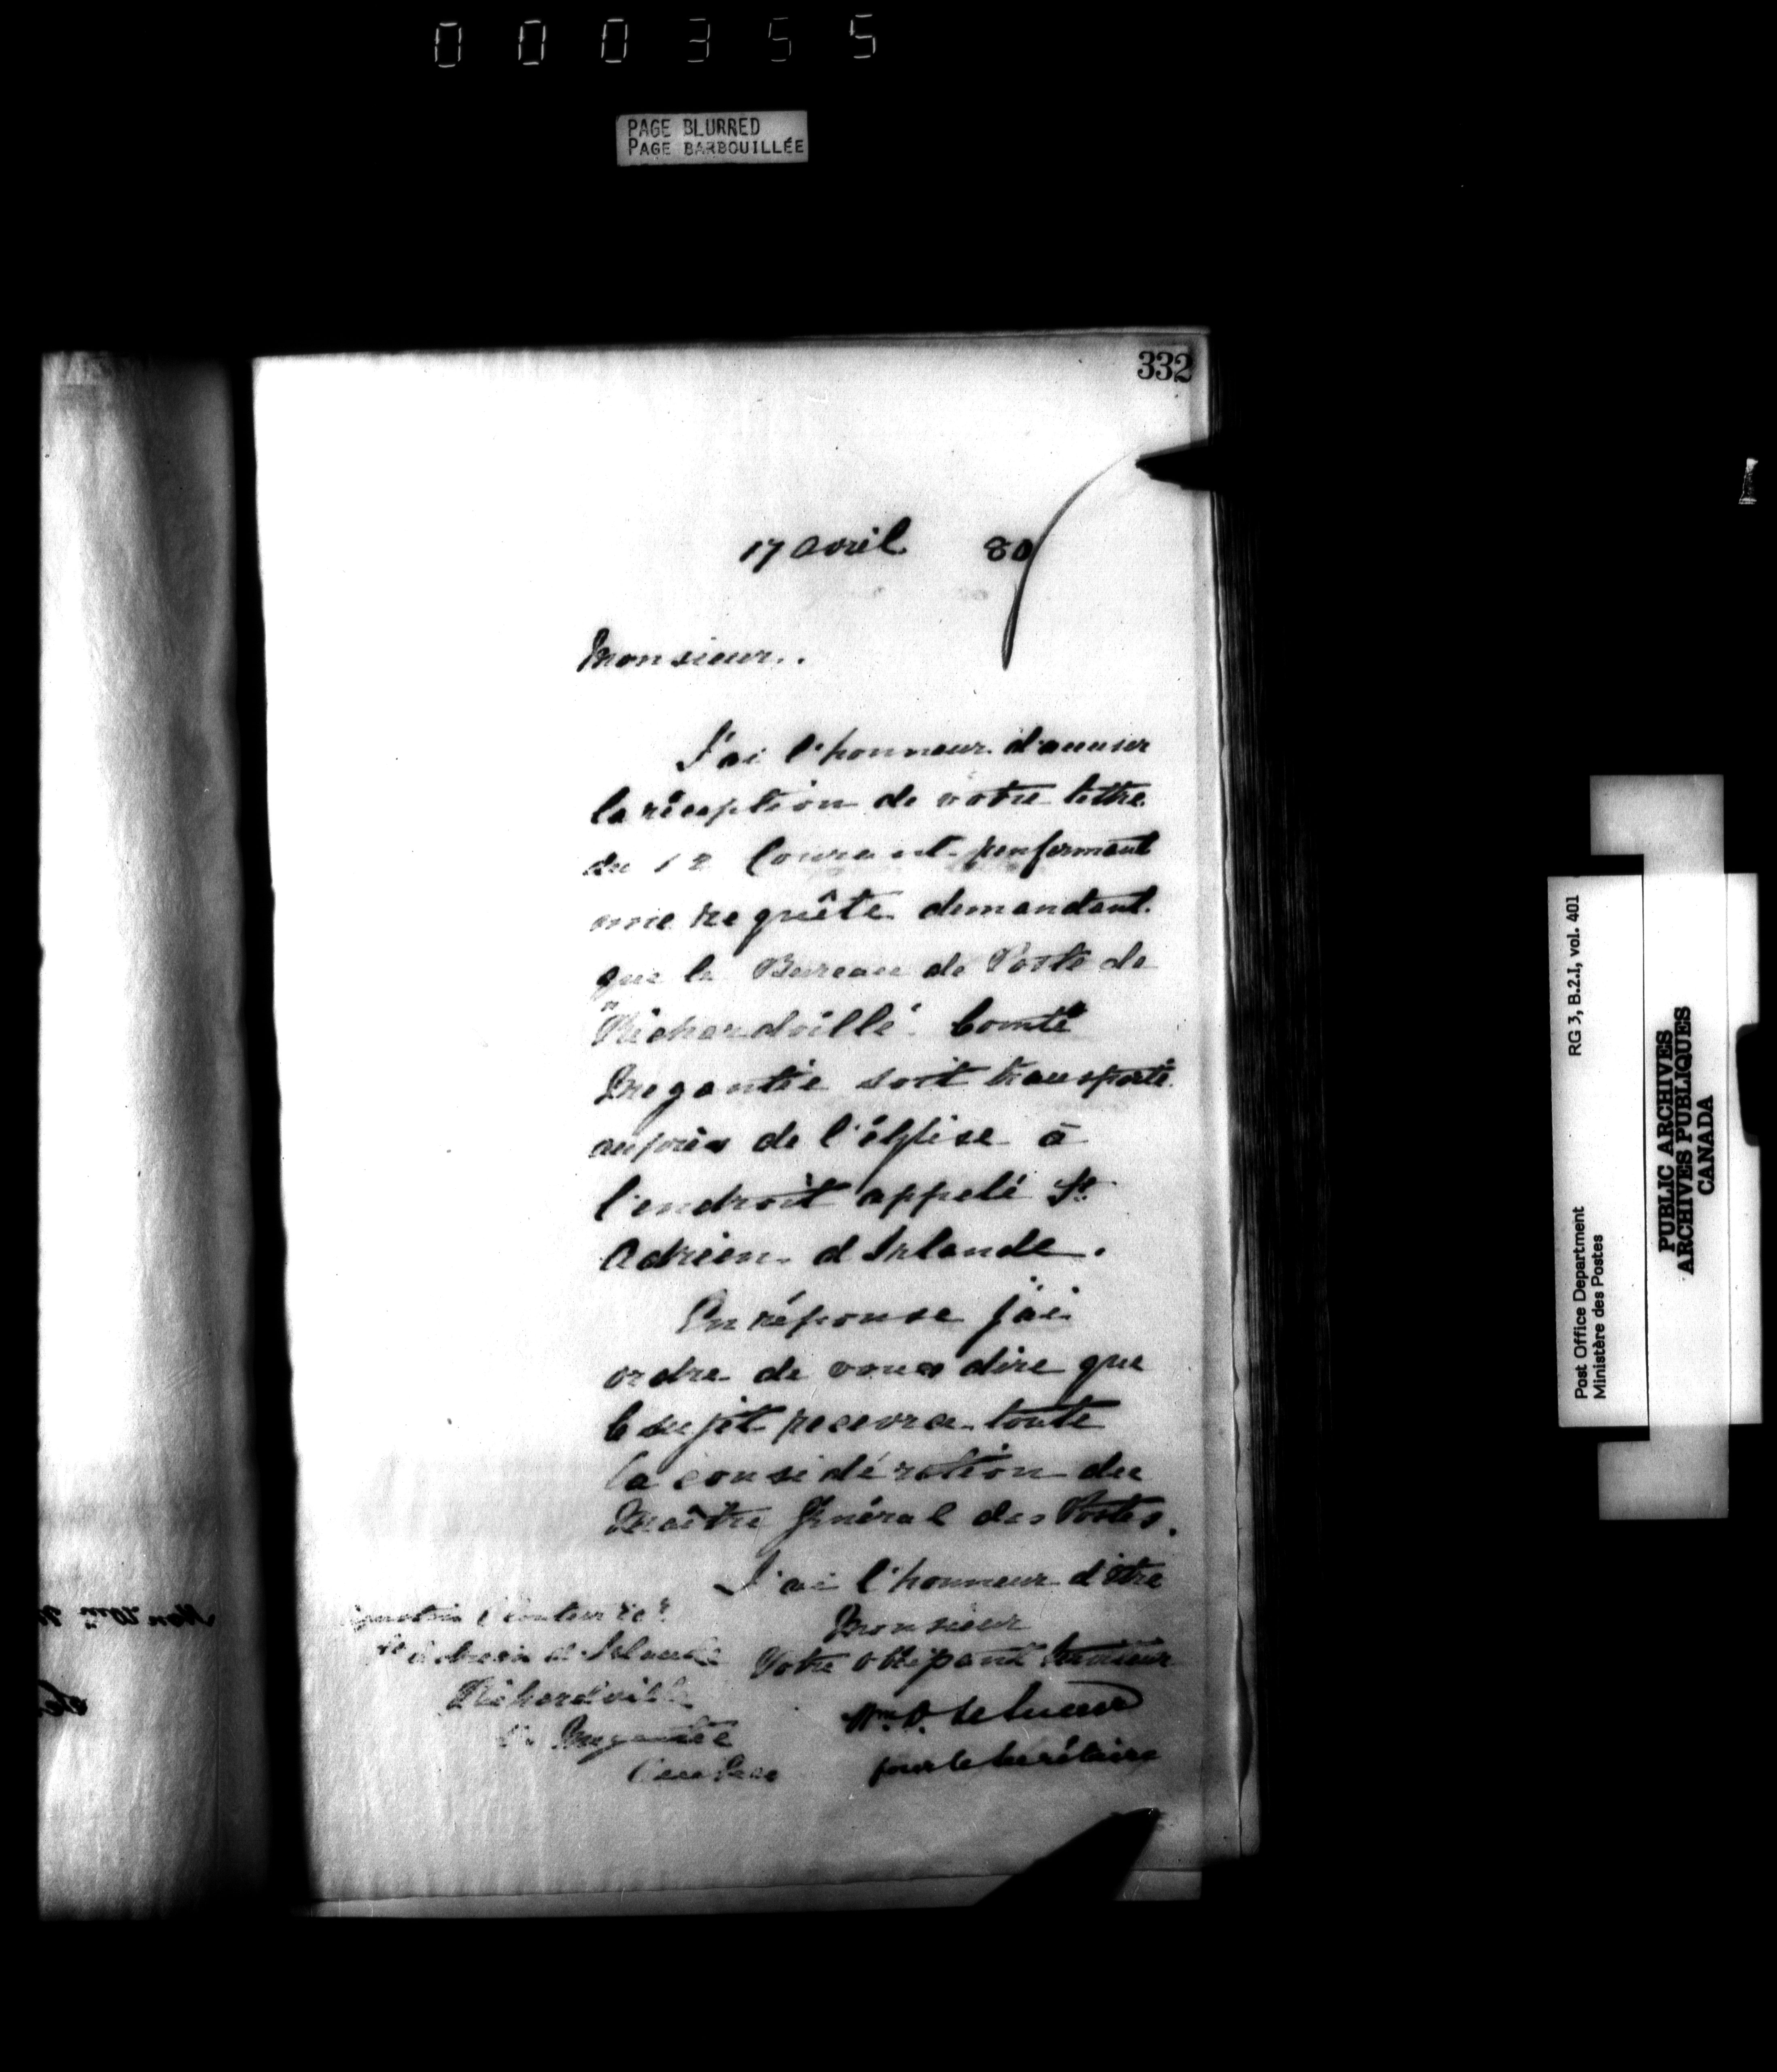 000355
PAGE BLURRED
PAGE BARBOUILLÉE
332
17 avril 80
Monsieur.
J'ai l'honneur d'accuser
la réception de votre lettre
du 12 Courant renfermant
une requête demandant
que le Bureau de Poste de
"Richardville" Comté
Megantic soit transporté
auprès de l'église à
l'endroit appelé St
Adrien d'Irlande.
En réponse j'ai
ordre de vous dire que
le sujet recevra toute
la considération du
Maître Général des Postes.
J'ai l'honneur d'être
Monsieur
Votre obligeant Serviteur
Wm D. LeSueur
pour le Secrétaire
St Adrien d'Irlande
Richardville
Co Megantic
Quebec
Post Office Department
Ministère des Postes
RG 3, B.2.I, vol. 401
PUBLIC ARCHIVES
ARCHIVES PUBLIQUES
CANADA